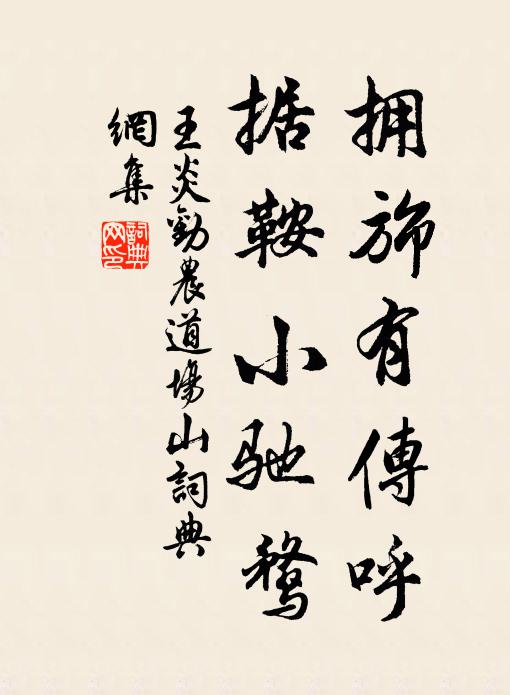 拥斾有傳呼
据鞍小驰鶩
王炎勸農道場山詞典
網集
詞典
网印